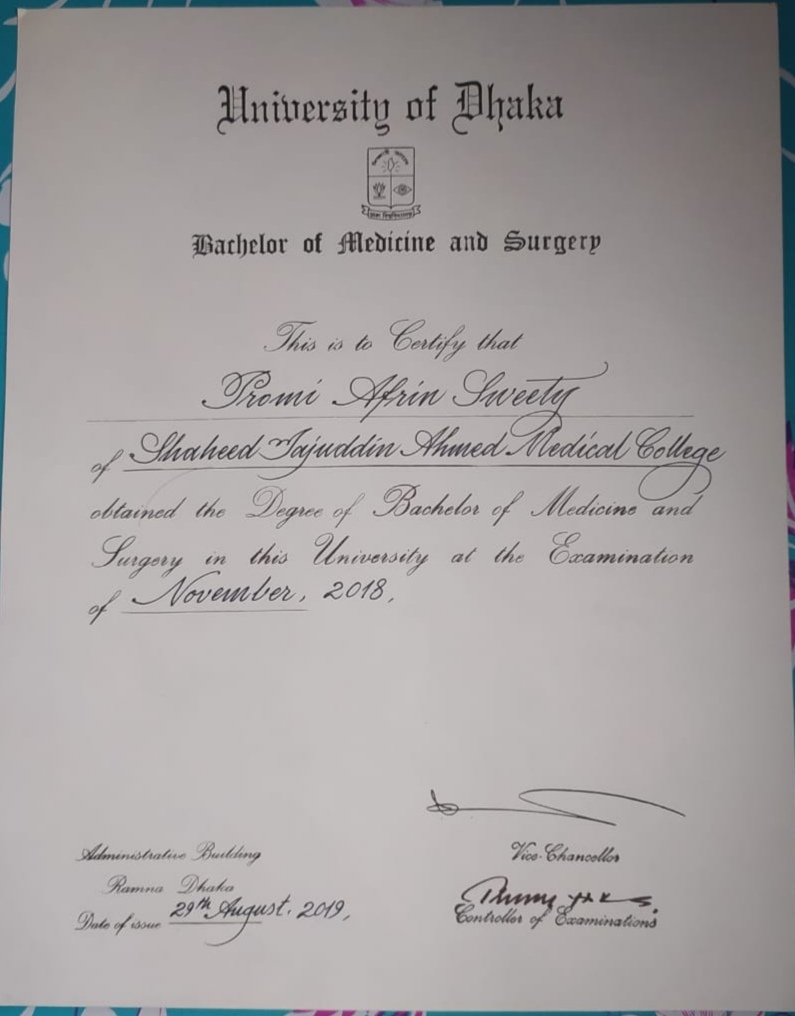 University of Dhaka
Bachelor of Medicine and Surgery
This is to Certify that
Promi Afrin Sweety
of Shaheed Tajuddin Ahmed Medical College
obtained the Degree of Bachelor of Medicine and
Surgery in this University at the Examination
of November, 2018,
Vice-Chancellor
Administrative Building
Ramna Dhaka
Date of issue 29th August, 2019,
Controller of Examinations